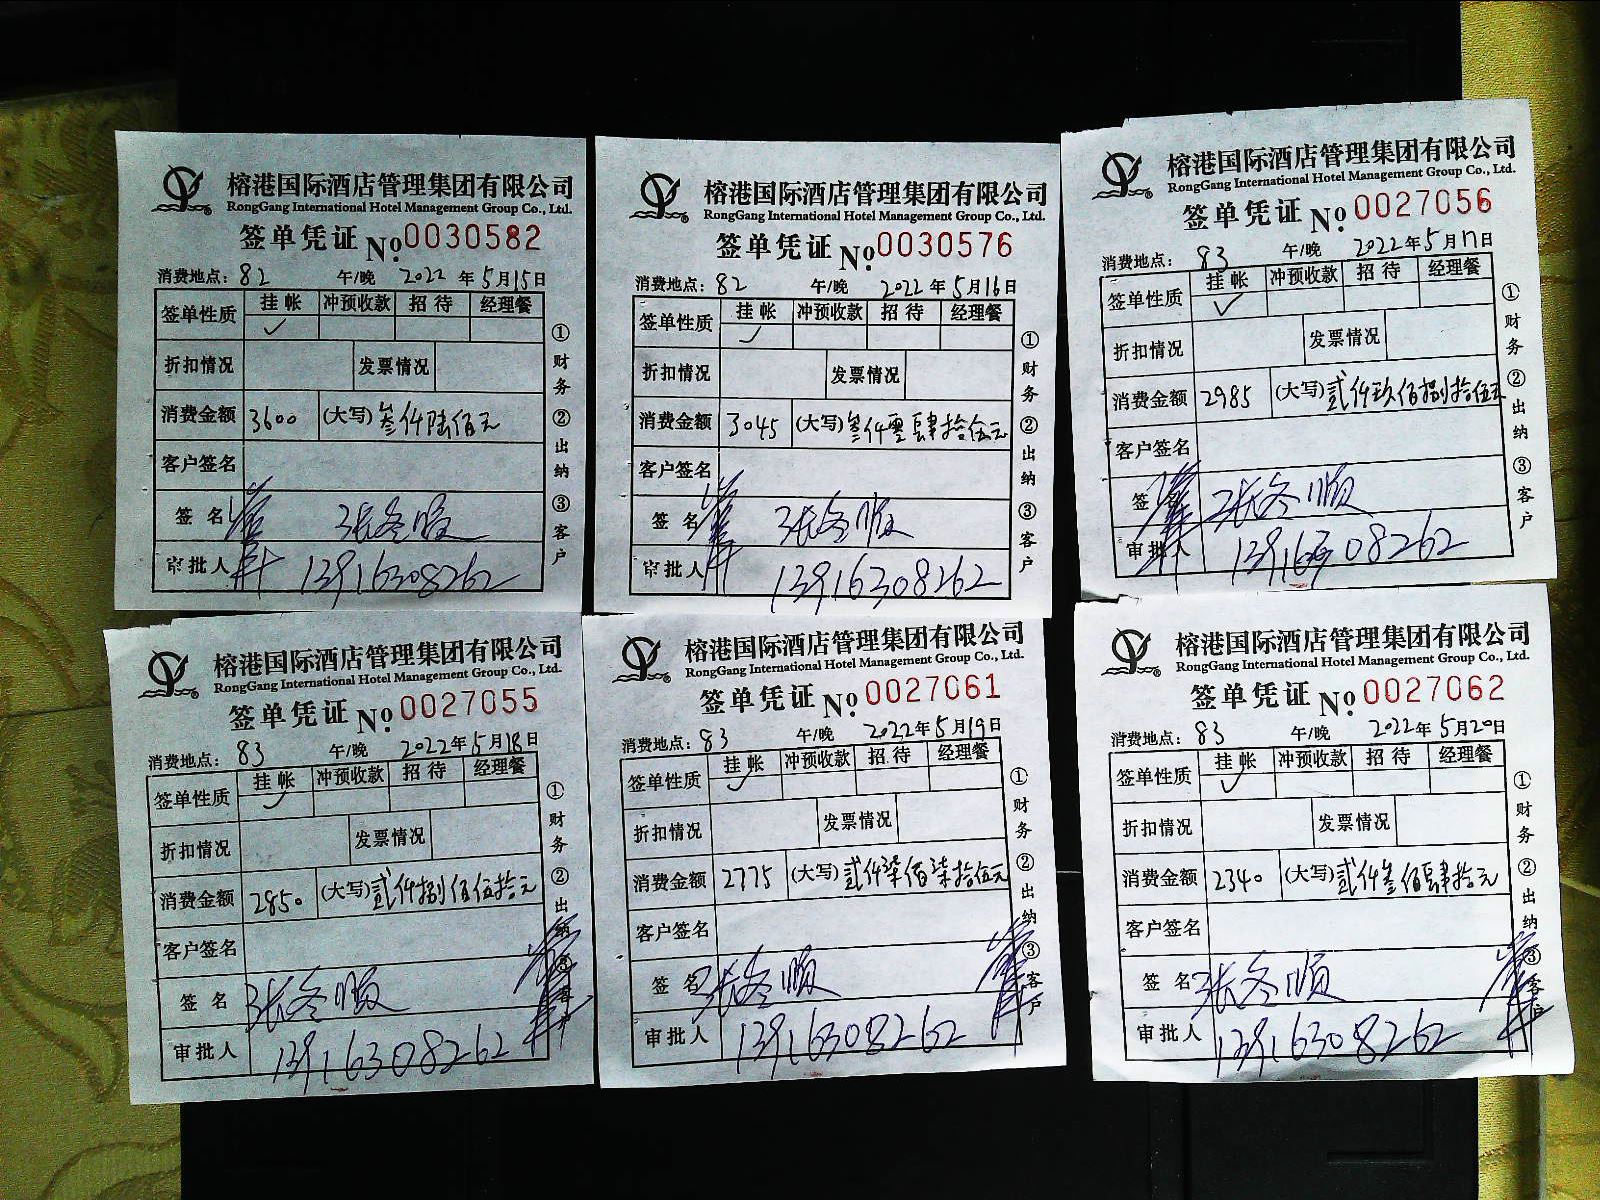 榕港国际酒店管理集团有限公司
RongGang International Hotel Management Group Co., Ltd.
签单凭证 No.0030582
消费地点：82 午/晚 2022年5月15日
签单性质 挂帐 冲预收款 招待 经理餐
✓
折扣情况 发票情况
消费金额 3600 (大写)叁仟陆佰元
客户签名
签名 张冬顺
审批人 13916308262
①财务 ②出纳 ③客户
榕港国际酒店管理集团有限公司
RongGang International Hotel Management Group Co., Ltd.
签单凭证 No.0030576
消费地点：82 午/晚 2022年5月16日
签单性质 挂帐 冲预收款 招待 经理餐
✓
折扣情况 发票情况
消费金额 3045 (大写)叁仟零肆拾伍元
客户签名
签名 张冬顺
审批人 13916308262
①财务 ②出纳 ③客户
榕港国际酒店管理集团有限公司
RongGang International Hotel Management Group Co., Ltd.
签单凭证 No.0027056
消费地点：83 午/晚 2022年5月17日
签单性质 挂帐 冲预收款 招待 经理餐
✓
折扣情况 发票情况
消费金额 2985 (大写)贰仟玖佰捌拾伍元
客户签名
签 张冬顺
审批人 13916308262
①财务 ②出纳 ③客户
榕港国际酒店管理集团有限公司
RongGang International Hotel Management Group Co., Ltd.
签单凭证 No.0027055
消费地点：83 午/晚 2022年5月18日
签单性质 挂帐 冲预收款 招待 经理餐
✓
折扣情况 发票情况
消费金额 2850 (大写)贰仟捌佰伍拾元
客户签名
签名 张冬顺
审批人 13916308262
①财务 ②出纳 ③客户
榕港国际酒店管理集团有限公司
RongGang International Hotel Management Group Co., Ltd.
签单凭证 No.0027061
消费地点：83 午/晚 2022年5月19日
签单性质 挂帐 冲预收款 招待 经理餐
✓
折扣情况 发票情况
消费金额 2775 (大写)贰仟柒佰柒拾伍元
客户签名
签名 张冬顺
审批人 13916308262
①财务 ②出纳 ③客户
榕港国际酒店管理集团有限公司
RongGang International Hotel Management Group Co., Ltd.
签单凭证 No.0027062
消费地点：83 午/晚 2022年5月20日
签单性质 挂帐 冲预收款 招待 经理餐
✓
折扣情况 发票情况
消费金额 2340 (大写)贰仟叁佰肆拾元
客户签名
签名 张冬顺
审批人 13916308262
①财务 ②出纳 ③客户